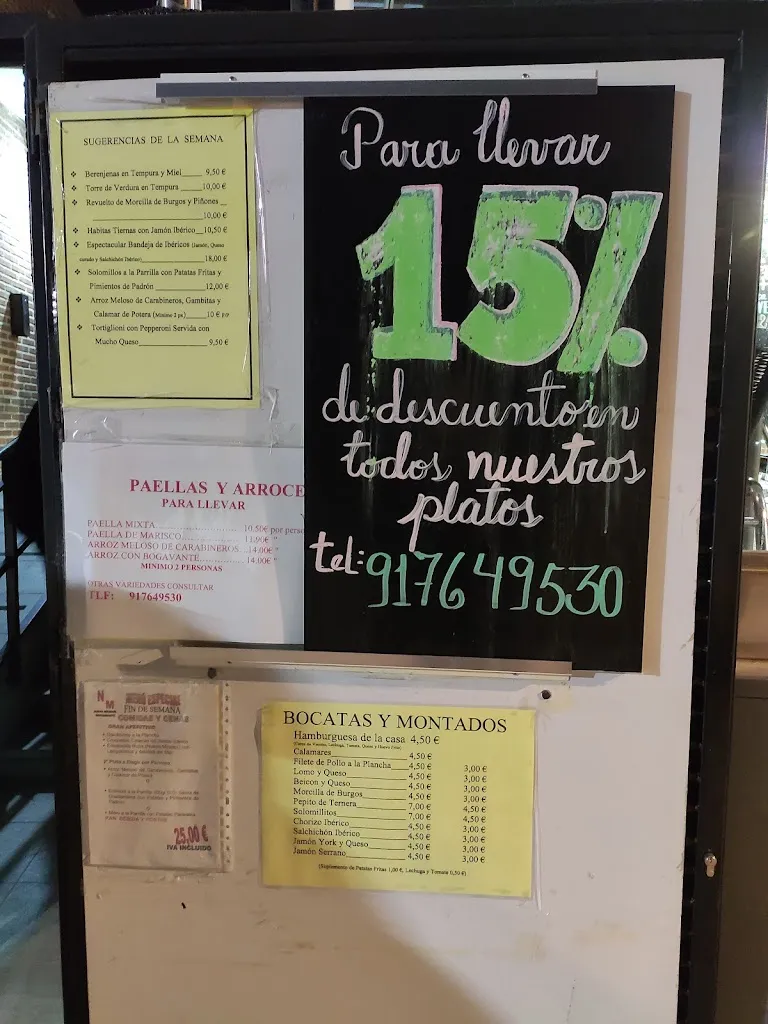 SUGERENCIAS DE LA SEMANA
Berenjenas en Tempura y Miel_____ 9,50 €
Torre de Verdura en Tempura _____10,00 €
Revuelto de Morcilla de Burgos y Piñones _
_____10,00 €
Habitas Tiernas con Jamón Ibérico__10,50 €
Espectacular Bandeja de Ibéricos (Jamón, Queso
curado y Salchichón Ibérico)_____18,00 €
Solomillos a la Parrilla con Patatas Fritas y
Pimientos de Padrón _____12,00 €
Arroz Meloso de Carabineros, Gambitas y
Calamar de Potera (Mínimo 2 ps)_____10 € p/p
Tortiglioni con Pepperoni Servida con
Mucho Queso_____ 9,50 €
Para llevar
15%
de descuento en
todos nuestros
platos
tel: 917649530
PAELLAS Y ARROCE
PARA LLEVAR
PAELLA MIXTA..................... 10.50€ por perso
PAELLA DE MARISCO............ 11.90€ "
ARROZ MELOSO DE CARABINEROS....14.00€ "
ARROZ CON BOGAVANTE........... 14.00€ "
MINIMO 2 PERSONAS
OTRAS VARIEDADES CONSULTAR
TLF: 917649530
NM
MENÚ ESPECIAL
FIN DE SEMANA
COMIDAS Y CENAS
25,00 €
IVA INCLUIDO
BOCATAS Y MONTADOS
Hamburguesa de la casa 4,50 €
Calamares_____4,50 €
Filete de Pollo a la Plancha____4,50 € 3,00 €
Lomo y Queso_____4,50 € 3,00 €
Beicon y Queso_____4,50 € 3,00 €
Morcilla de Burgos_____4,50 € 3,00 €
Pepito de Ternera_____7,00 €
Solomillitos_____7,00 € 4,50 €
Chorizo Ibérico_____4,50 € 3,00 €
Salchichón Ibérico_____4,50 € 3,00 €
Jamón York y Queso_____4,50 € 3,00 €
Jamón Serrano_____4,50 € 3,00 €
(Suplemento de Patatas Fritas 1,00 €, Lechuga y Tomate 0,50 €)